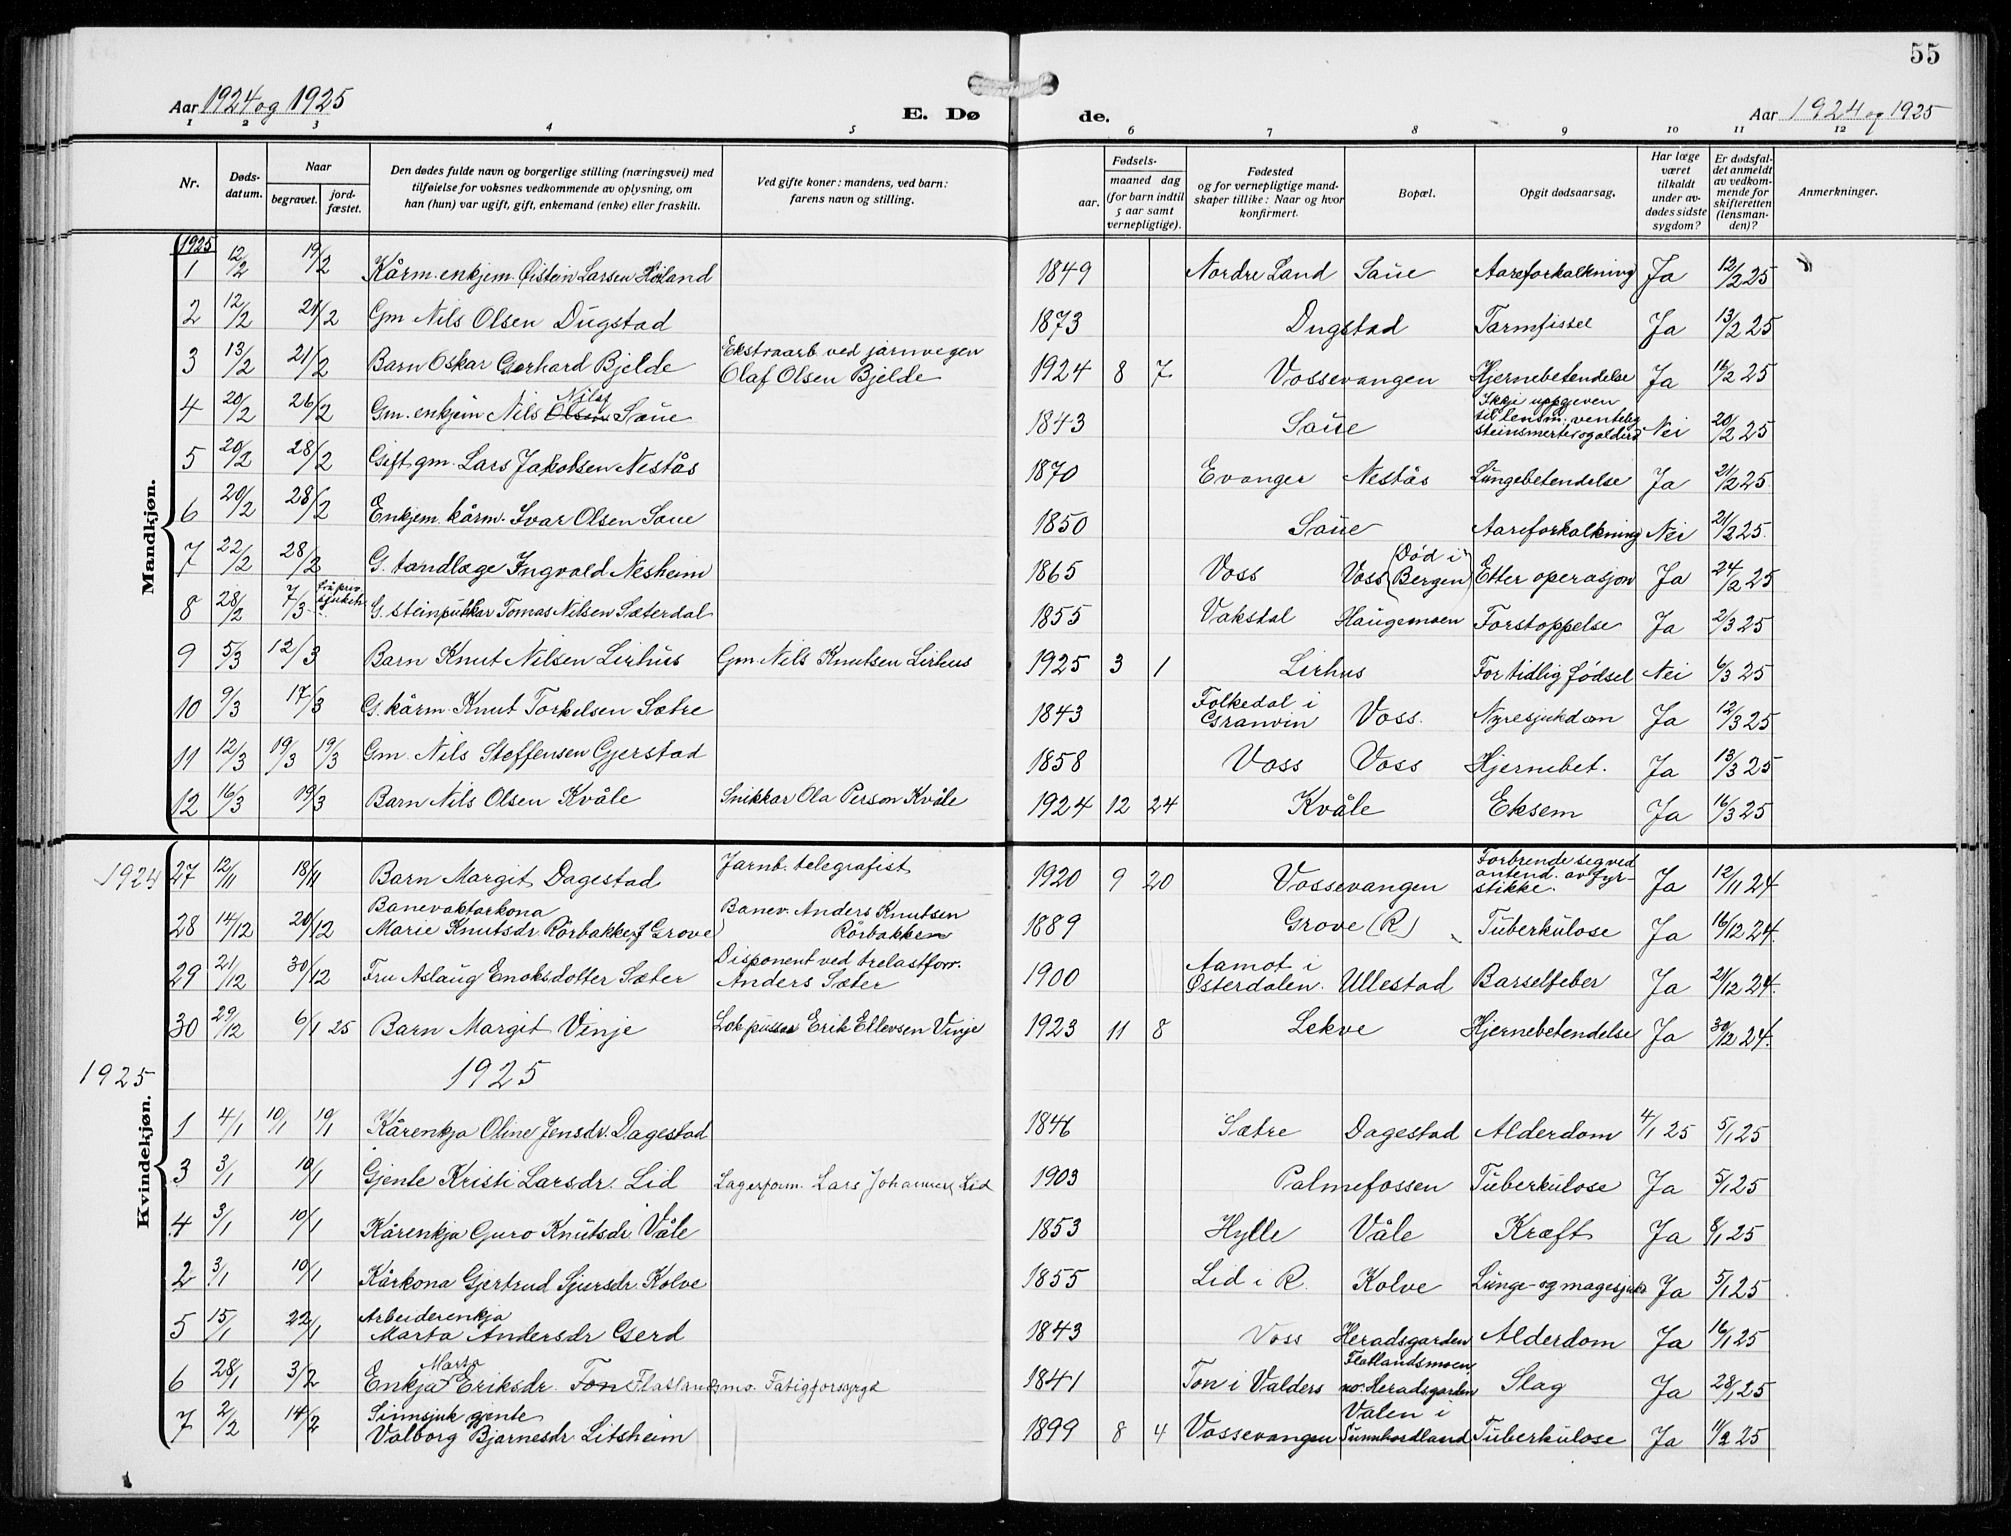 55
Aar 1924 og 1925 E. Dø de. Aar 1924 og 1925
1 2 3 4 5 6 7 8 9 10 11 12
Nr. Døds-datum. Naar begravet. jord-fæstet. Den dødes fulde navn og borgerlige stilling (næringsvei) med tilføielse for voksnes vedkommende av oplysning, om han (hun) var ugift, gift, enkemand (enke) eller fraskilt. Ved gifte koner: mandens, ved barn: farens navn og stilling. Fødsels- aar. maaned dag (for barn indtil 5 aar samt vernepligtige). Fødested og for vernepligtige mand-skaper tillike: Naar og hvor konfirmert. Bopæl. Opgit dødsaarsag. Har læge været tilkaldt under av-dødes sidste sygdom? Er dødsfal-det anmeldt av vedkom-mende for skifteretten (lensman-den)? Anmerkninger.
Mandkjøn.
1925
1 12/2 19/2 Kårm. enkjem. Øistein Larsen Høland 1849 Nordre Land Saue Aareforkalkning Ja 12/2 25
2 12/2 21/2 Gm Nils Olsen Dugstad 1873 Dugstad Tarmfissel Ja 13/2 25
3 13/2 21/2 Barn Oskar Gerhard Bjelde Ekstraarb. ved jarnvegen Olaf Olsen Bjelde 1924 8 7 Vossevangen Hjernebetendelse Ja 16/2 25
4 20/2 26/2 Gm. enkjem Nils Olsen Nilss Saue 1843 Saue Ikkje uppgeven til lensm. venteleg steinsmerter og alderd Nei 20/2 25
5 20/2 28/2 Gift gm. Lars Jakobsen Nestås 1870 Evanger Nestås Lungebetendelse Ja 21/2 25.
6 20/2 28/2 Enkjem. kårm. Ivar Olsen Saue 1850 Saue Aareforkalkning Nei 21/2 25.
7 22/2 28/2 G. tandlæge Ingvald Nesheim 1865 Voss Voss (Død i Bergen) Etter operasjon Ja 24/2 25
8 28/2 7/3 G. steinpukkar Tomas Nilsen Sæterdal 1855 Vakstal Haugamoen Forstoppelse Ja 2/3 25
9 5/3 12/3 Barn Knut Nilsen Lirhus Gm. Nils Knutsen Lirhus 1925 3 1 Lirhus For tidlig fødsel Nei 6/3 25
10 9/3 17/3 G. kårm. Knut Torkelsen Sætre 1843 Folkedal i Granvin Voss. Nyresjukdom Ja 12/3 25
11 12/3 19/3 19/3 Gm. Nils Steffensen Gjerstad 1858 Voss Voss Hjernebet. Ja 13/3 25
12 16/3 19/3 Barn Nils Olsen Kvåle Snikkar Ola Person Kvåle 1924 12 24 Kvåle Eksem Ja 16/3 25
Kvindekjøn.
1924 27 12/11 18/11 Barn Margit Dagestad Jarnb. telegrafist 1920 9 20 Vossevangen Forbrende seg ved antend. av fyr-stikke. Ja 12/11 24
28 14/12 20/12 Banevaktarkona Marie Knutsdr. Rørbakken/Grove Banev. Anders Knutsen Rørbakken 1889 Grove (R) Tuberkulose Ja 16/12 24.
29 21/12 30/12 Fru Aslaug Enoksdotter Sæter Disponent ved trelastforr. Anders Sæter 1900 Aamot i Østerdalen. Ullestad Barselfeber Ja 21/12 24.
30 29/12 6/1 25 Barn Margit Vinje Lokpusser Erik Ellevsen Vinje 1923 11 8 Lekve Hjernebetendelse Ja 30/12 24.
1925 1925
1 4/1 10/1 10/1 Kårenkja Oline Jensdr. Dagestad 1846 Sætre Dagestad Alderdom 4/1 25 5/1 25
3 3/1 10/1 Gjente Kristi Larsdr. Lid Lagerform. Lars Johannes Lid 1903 Palmefossen Tuberkulose Ja 5/1 25
4 3/1 10/1 Kårenkja Guro Knutsdr. Våle 1853 Hylle Våle Kræft Ja 8/1 25
2 3/1 10/1 Kårkona Gjertrud Sjursdr. Kolve 1855 Lid i R. Kolve Lunge- og magesjuke Ja 5/1 25
5 15/1 22/1 Arbeiderenkja Marta Andersdr Gjerd 1843 Voss Heradsgarden Alderdom Ja 16/1 25
6 28/1 3/2 Enkja Marta Eriksdr. Ton Flatlandsmo. Fatigforsyrgd 1841 Ton i Valders Flatlandsmoen no. Heradsgarden Slag Ja 28/1 25
7 2/2 14/2 Sinnsjuk gjente Valborg Bjarnesdr. Litsheim 1899 8 4 Vossevangen Valen i Sunnhordland Tuberkulose Ja 11/2 25